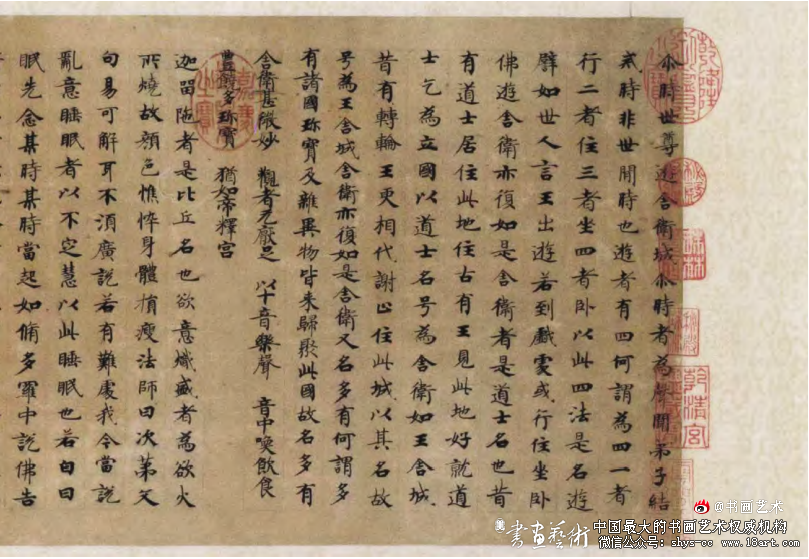 尒時世尊遊舍衛城尒時者為聲聞弟子結
戒時非世間時也遊者有四何謂為四一者
行二者住三者坐四者卧以此四法是名遊
譬如世人言王出遊若到戲處或行住坐卧
佛遊舍衛亦復如是舍衛者是道士名也昔
有道士居住此地住古有王見此地好就道
士乞為立國以道士名号為舍衛如王舍城
昔有轉輪王更相代謝止住此城以其名故
号為王舍城舍衛亦復如是舍衛又名多有何謂多
有諸國珎寶及雜異物皆来歸聚此國故名多有
舍衛甚微妙 觀者无厭足 以十音樂聲 音中喚飲食
豐饒多珎寶 猶如帝釋宮
迦留陁者是比丘名也欲意熾盛者為欲火
所燒故顏色憔悴身體損瘦法師曰次第文
句易可解耳不湏廣說若有難處我今當說
亂意睡眠者以不定慧以此睡眠也若自曰
眠先念某時某時當起如脩多羅中說佛告
乾清宮
@书画艺术
書畫藝術
中国最大的书画艺术权威机构
微信公众号: shys-cc www.18art.com